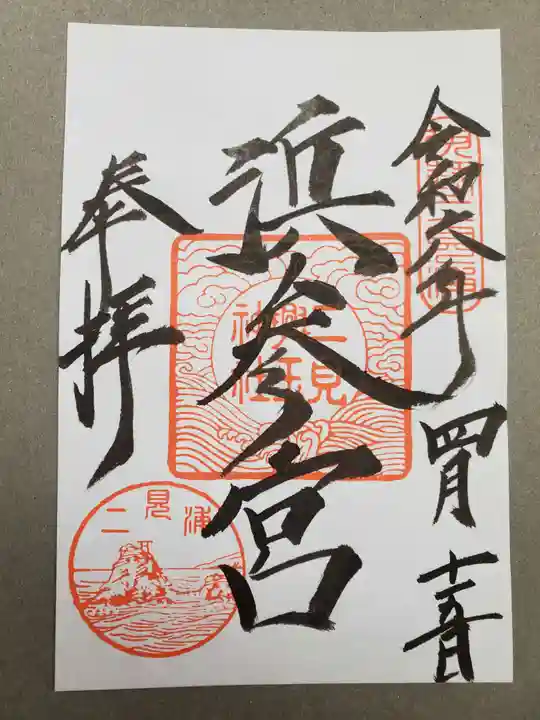 令和六年四月十五日
浜参宮
奉拝
二見
興玉
神社
二見浦